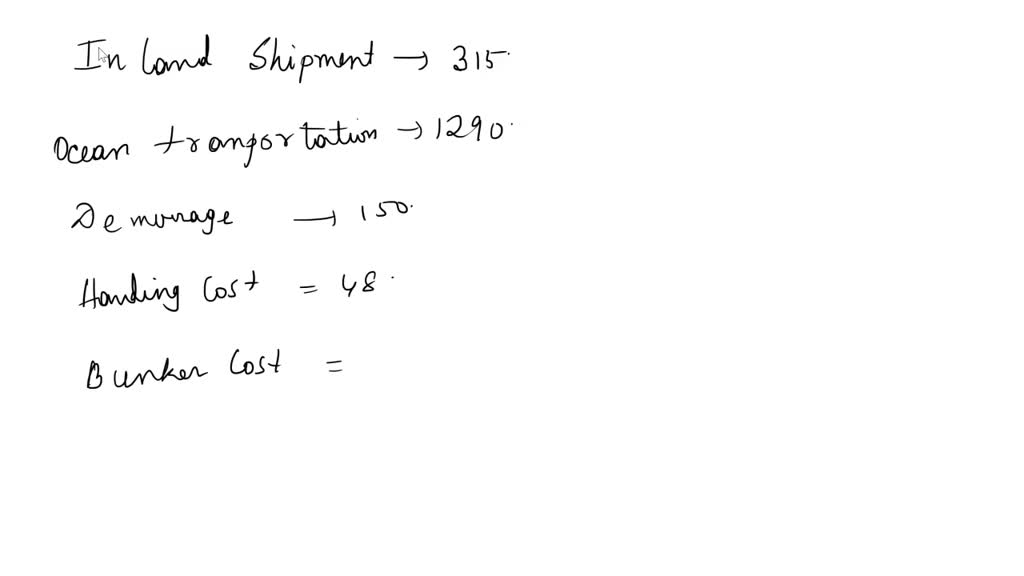 In land Shipment → 315.
Ocean tranportation → 1290.
Demurrage → 150.
Handing Cost = 48.
Bunker Cost =